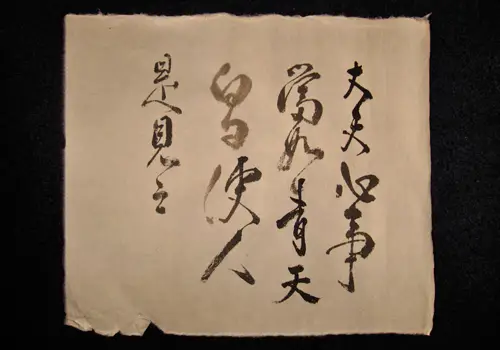 丈夫心事
當如青天
白日使人
見之